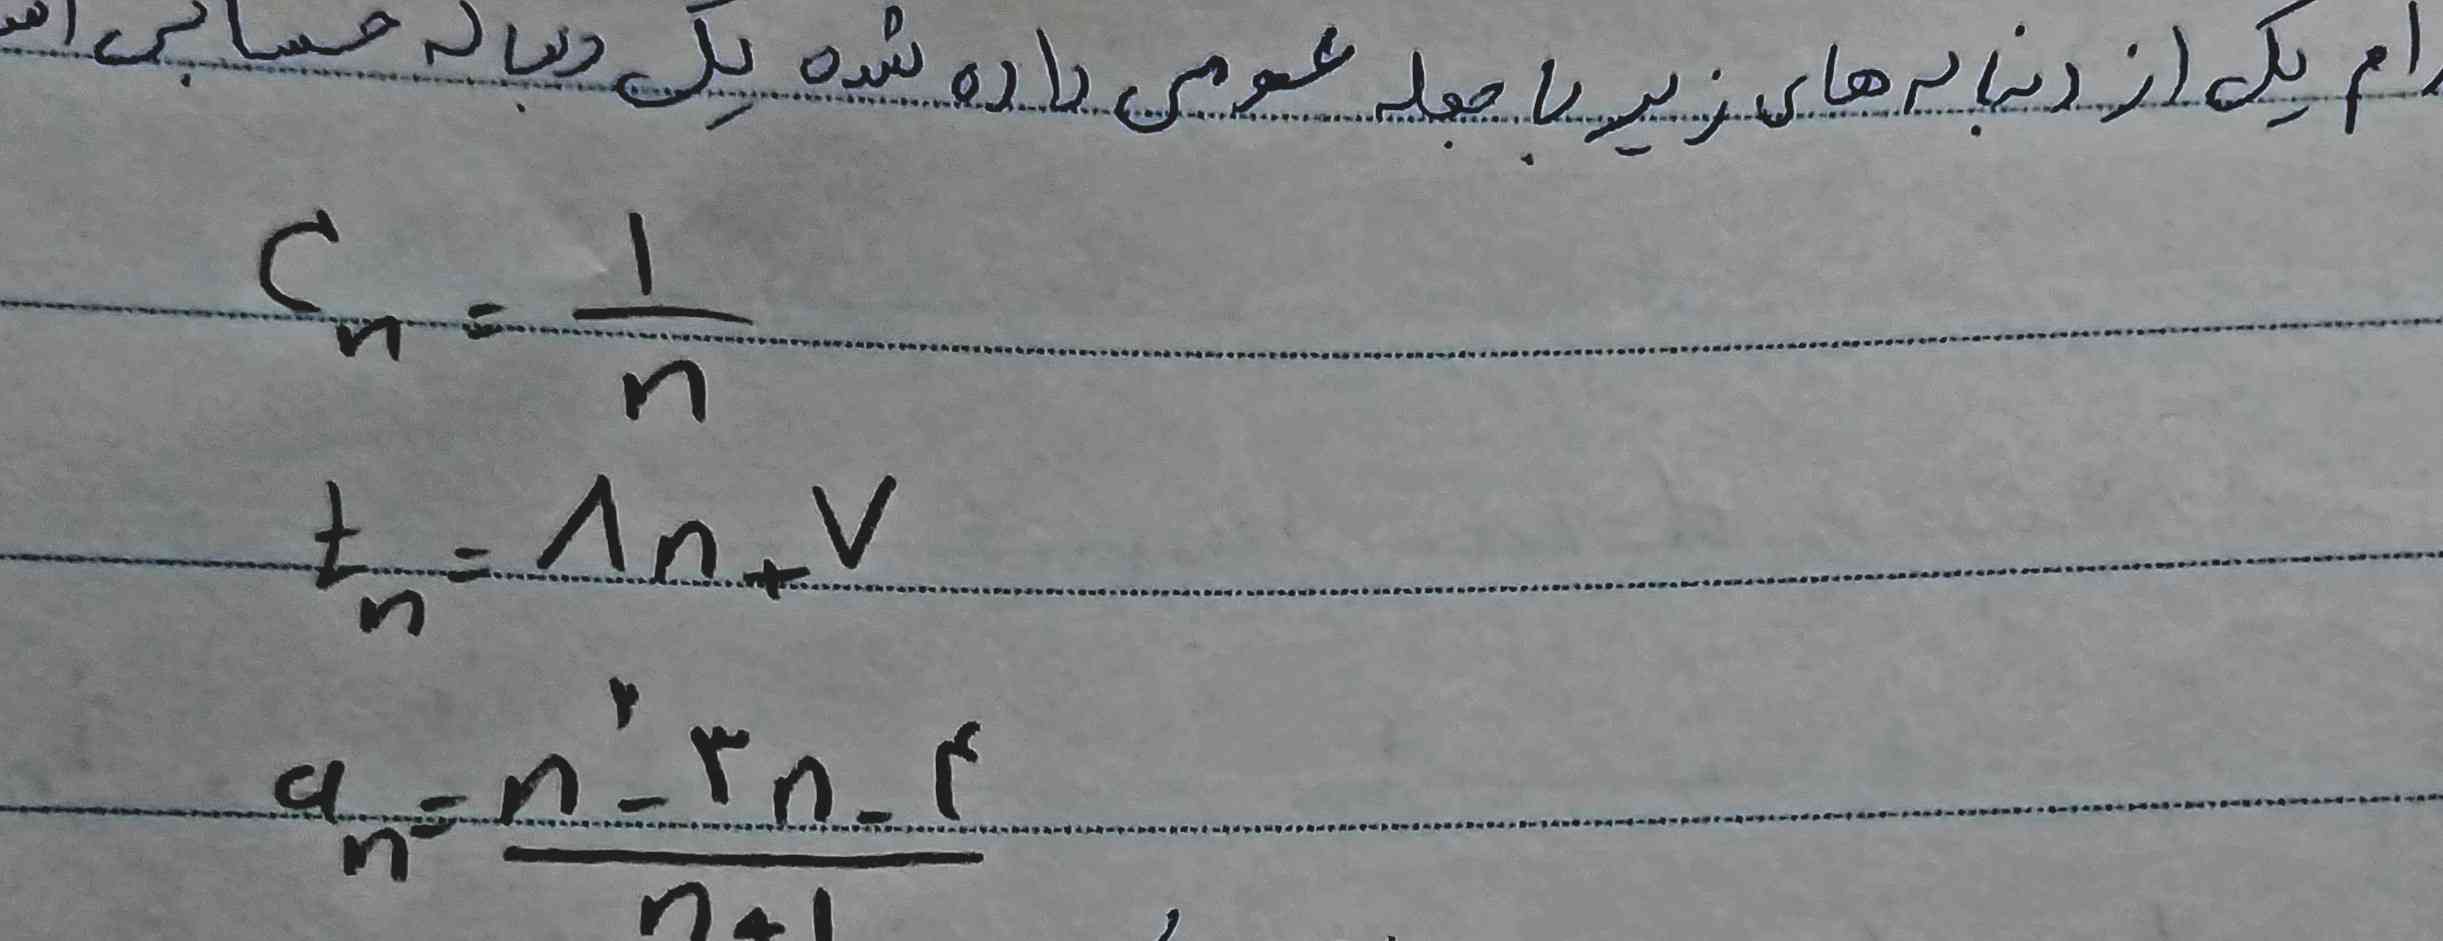 رام یک از دنباله های زیر با جمله عمومی داره شده یک دنباله حسابی
C_n = ۱/n
t_n = ۸n + ۷
a_n = (n^۲ - ۳n - ۴)/(n + ۱)